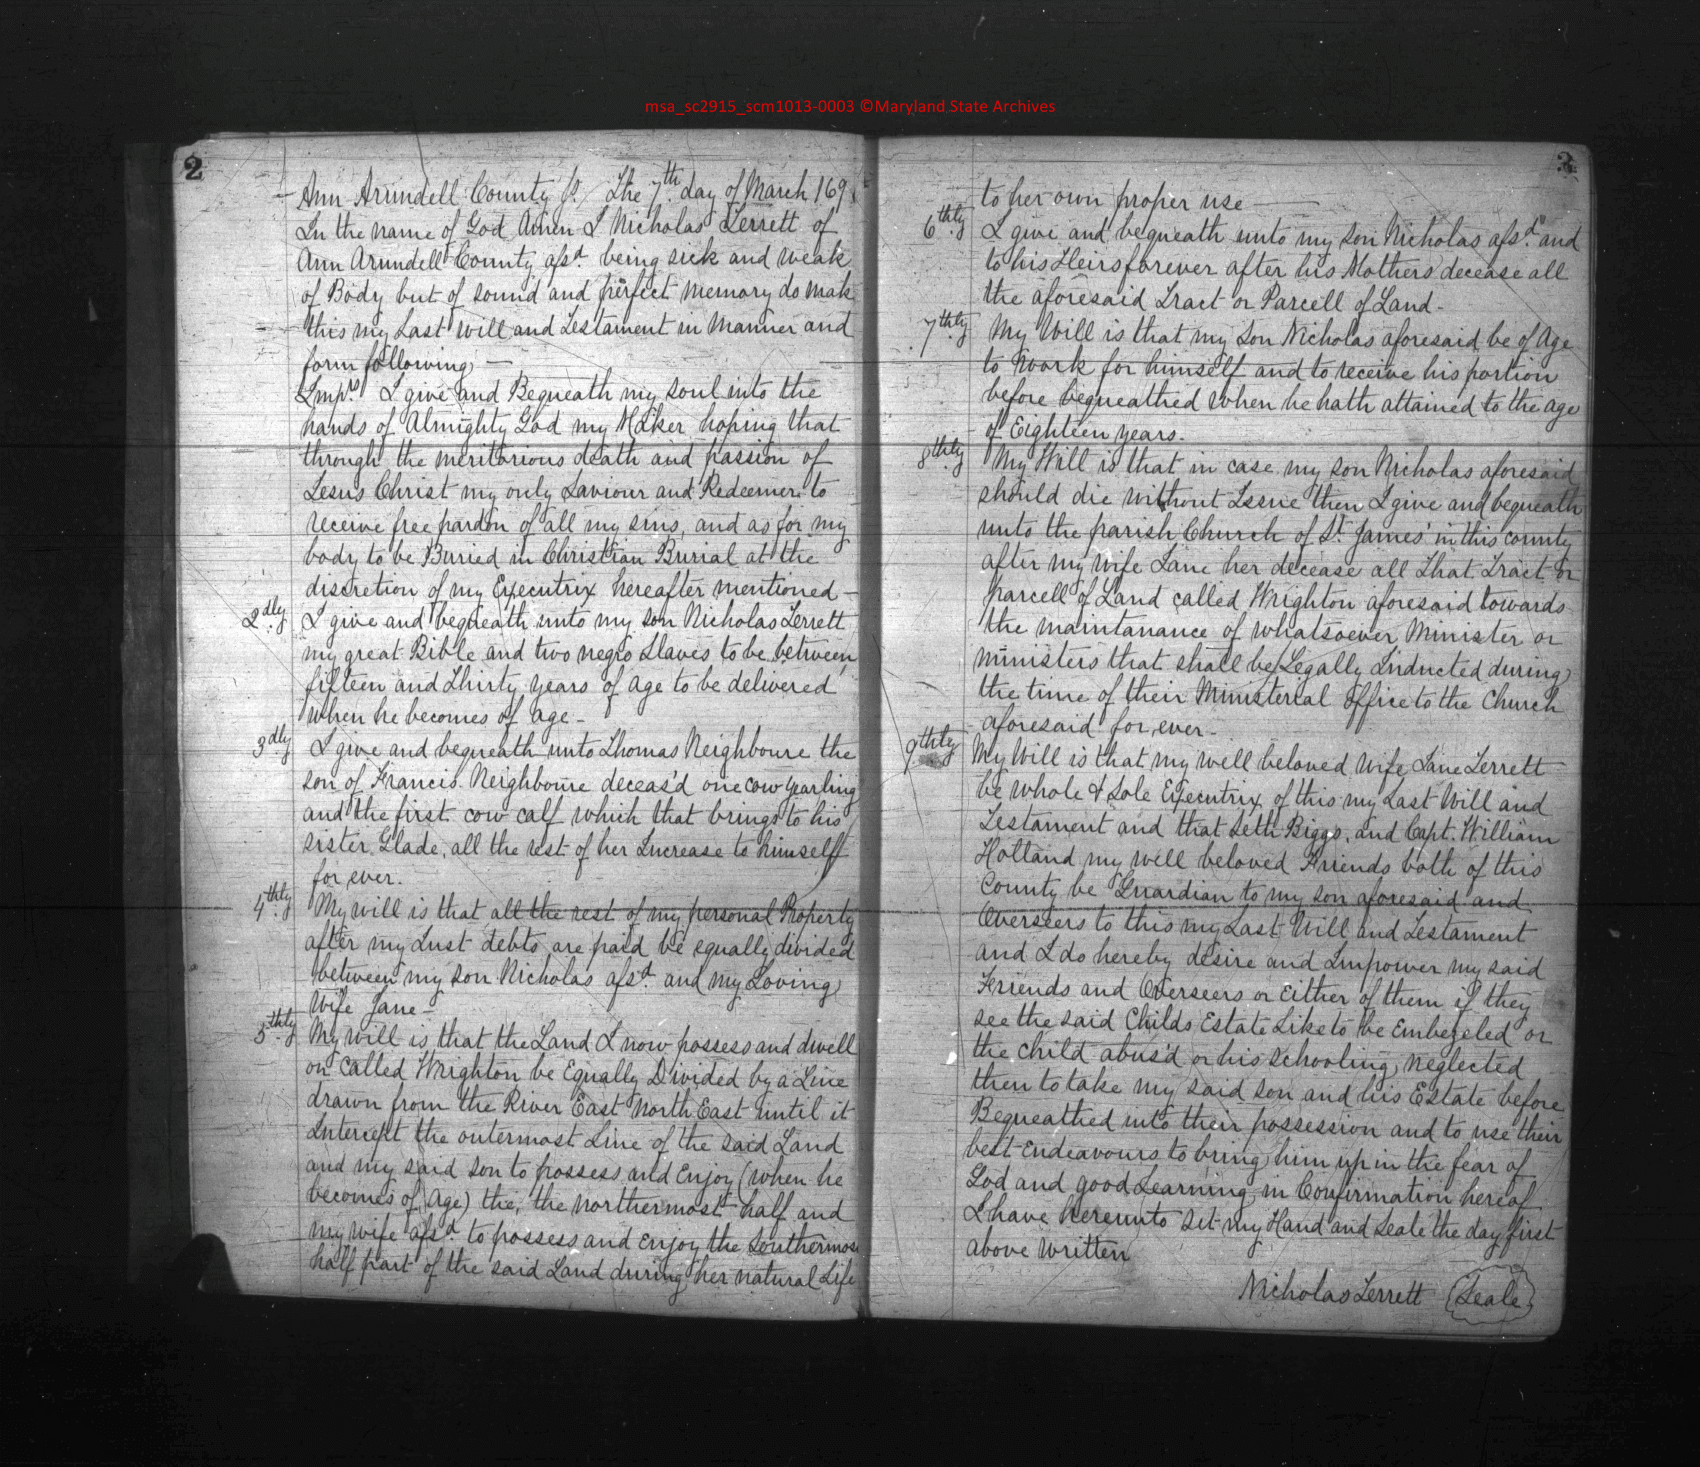 msa_sc2915_scm1013-0003 ©Maryland State Archives
2
Ann Arundell County ss. The 7th day of March 169
In the name of God Amen I Nicholas Terrett of
Ann Arundell County afsd. being sick and weak
of Body but of sound and perfect Memory do Mak
this my Last Will and Testament in Manner and
form following —
Imprs. I give and Bequeath my soul into the
hands of Almighty God my Maker hoping that
through the meritorious death and passion of
Jesus Christ my only Saviour and Redeemer to
receive free pardon of all my sins, and as for my
body to be Buried in Christian Burial at the
discretion of my Executrix hereafter mentioned —
2dly I give and bequeath unto my son Nicholas Terrett
my great Bible and two negro Slaves to be between
fifteen and Thirty years of age to be delivered
when he becomes of age -
3dly I give and bequeath unto Thomas Neighboure the
son of Francis Neighboure deceas'd one cow yearling
and the first cow calf which that brings to his
sister Glade, all the rest of her Increase to himself
for ever.
4thly My will is that all the rest of my personal Property
after my Just debts are paid be equally divided
between my son Nicholas afsd. and my Loving
Wife Jane -
5thly My will is that the Land I now possess and dwell
on called Wrighton be Equally Divided by a Line
drawn from the River East North East until it
Intercept the outermost Line of the said Land
and my said son to possess and Enjoy (when he
becomes of Age) the, the northermost half and
my wife afsd. to possess and enjoy the Southermos
half part of the said Land during her natural Life
3
to her own proper use —
6thly I give and bequeath unto my son Nicholas afsd. and
to his Heirs forever after his Mothers decease all
the aforesaid Tract or Parcell of Land -
7thly My Will is that my Son Nicholas aforesaid be of Age
to work for himself and to receive his portion
before bequeathed when he hath attained to the age
of Eighteen years.
8thly My Will is that in case my son Nicholas aforesaid
should die without Issue then I give and bequeath
unto the parish Church of St. James' in this county
after my wife Jane her decease all That Tract or
Parcell of Land called Wrighton aforesaid towards
the maintanance of whatsoever Minister or
Ministers that shall be Legally Inducted during
the time of their Ministerial Office to the Church
aforesaid for ever -
9thly My Will is that my well beloved Wife Jane Terrett
be whole & Sole Executrix of this my Last Will and
Testament and that Seth Biggs, and Capt. William
Holland my well beloved Friends both of this
County be Guardian to my son aforesaid and
Overseers to this my Last Will and Testament
and I do hereby desire and Impower my said
Friends and Overseers or Either of them if they
see the said Childs Estate Like to be Embezeled or
the child abus'd or his schooling neglected
then to take my said son and his Estate before
Bequeathed into their possession and to use their
best Endeavours to bring him up in the fear of
God and good Learning, in Confirmation hereof
I have hereunto Set my Hand and Seale the day first
above Written
Nicholas Terrett (Seale)